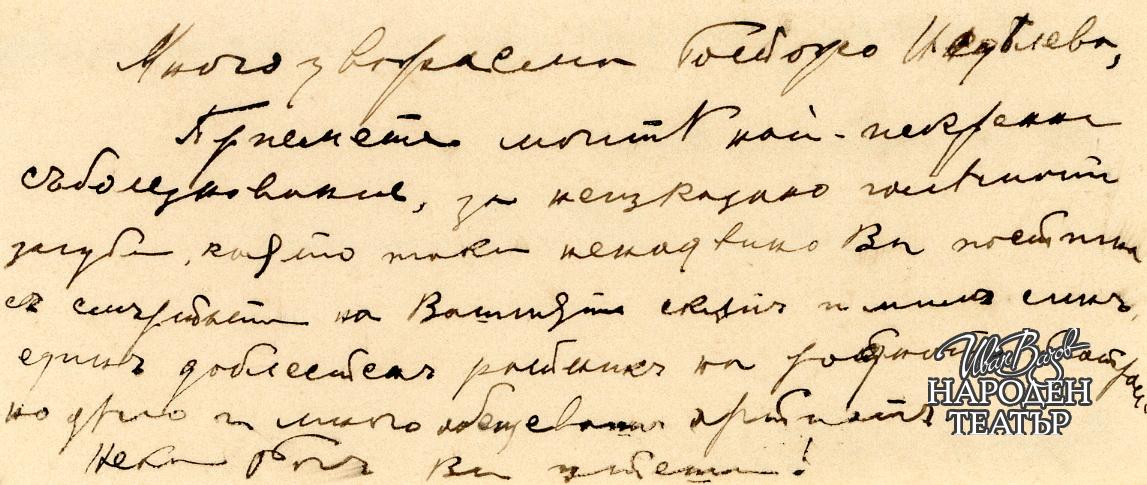 Много уважаема Госпожо Недѣлева,
Приемете моитѣ най-искренни
съболезнования, за неизказано голѣмата
загуба, която така ненадейно Ви постигна
съ смъртьта на Вашиятъ скъпъ и милъ синъ,
единъ доблестенъ работникъ на
но дѣло и много обещаващъ артистъ
Нека Богъ Ви утеши!
Иван Вазов
НАРОДЕН
ТЕАТЪР